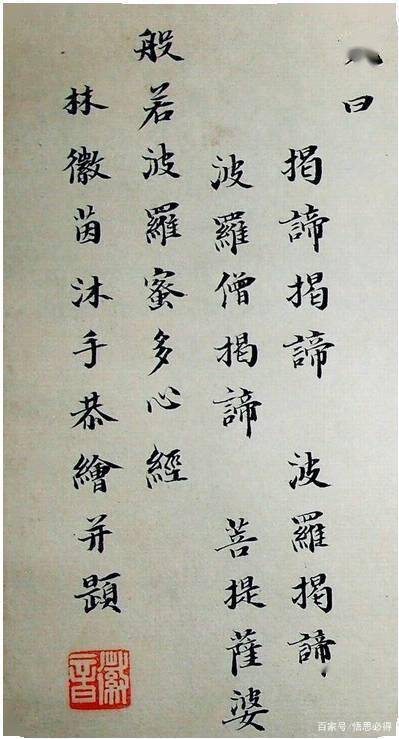 曰
揭諦揭諦 波羅揭諦
波羅僧揭諦 菩提薩婆
般若波羅蜜多心經
林徽茵沐手恭繪并題
徽音
百家号/悟思必得